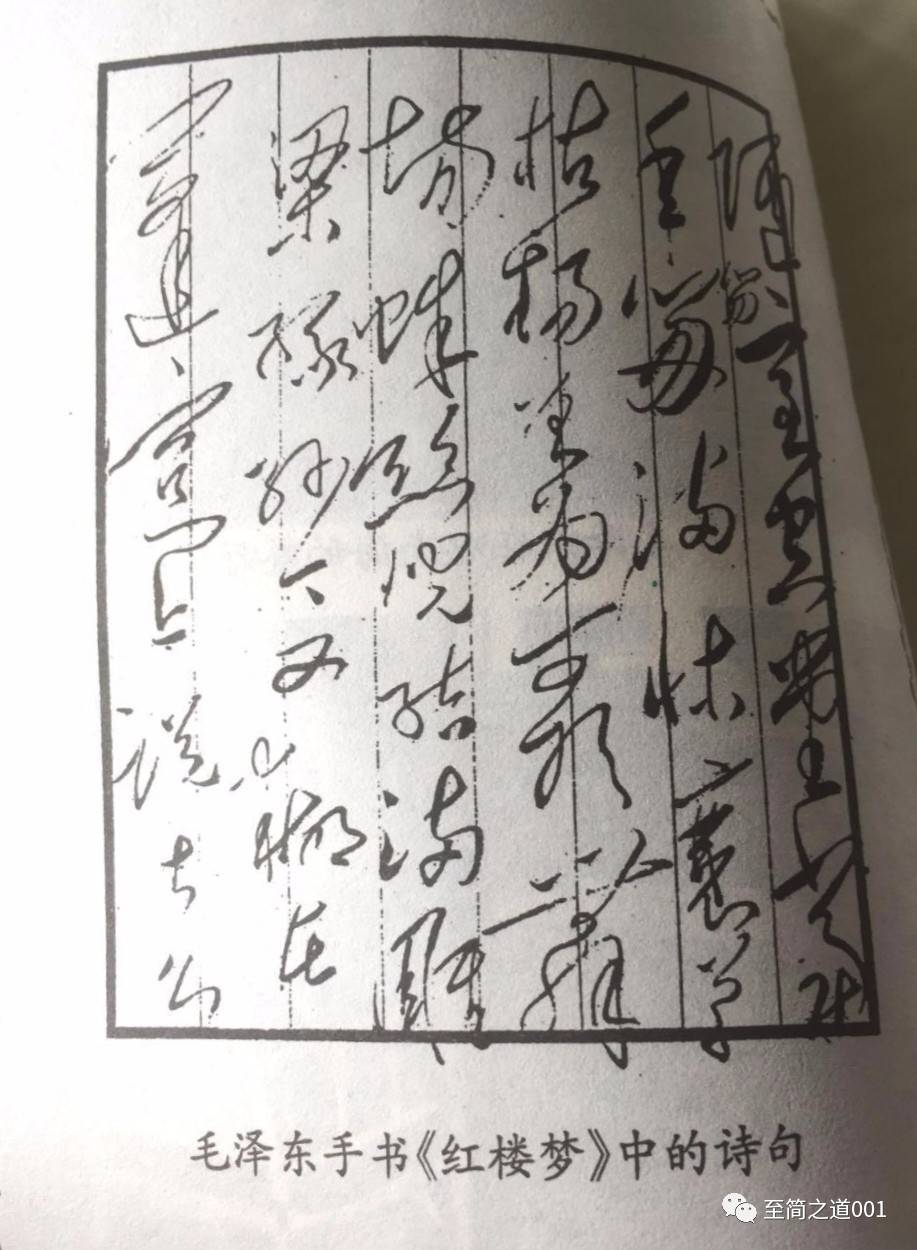 陋室空堂当
年笏满床衰草
枯杨曾为歌舞
场蛛丝儿结满雕
梁绿纱今又糊在
蓬窗上说什么
毛泽东手书《红楼梦》中的诗句
至简之道001